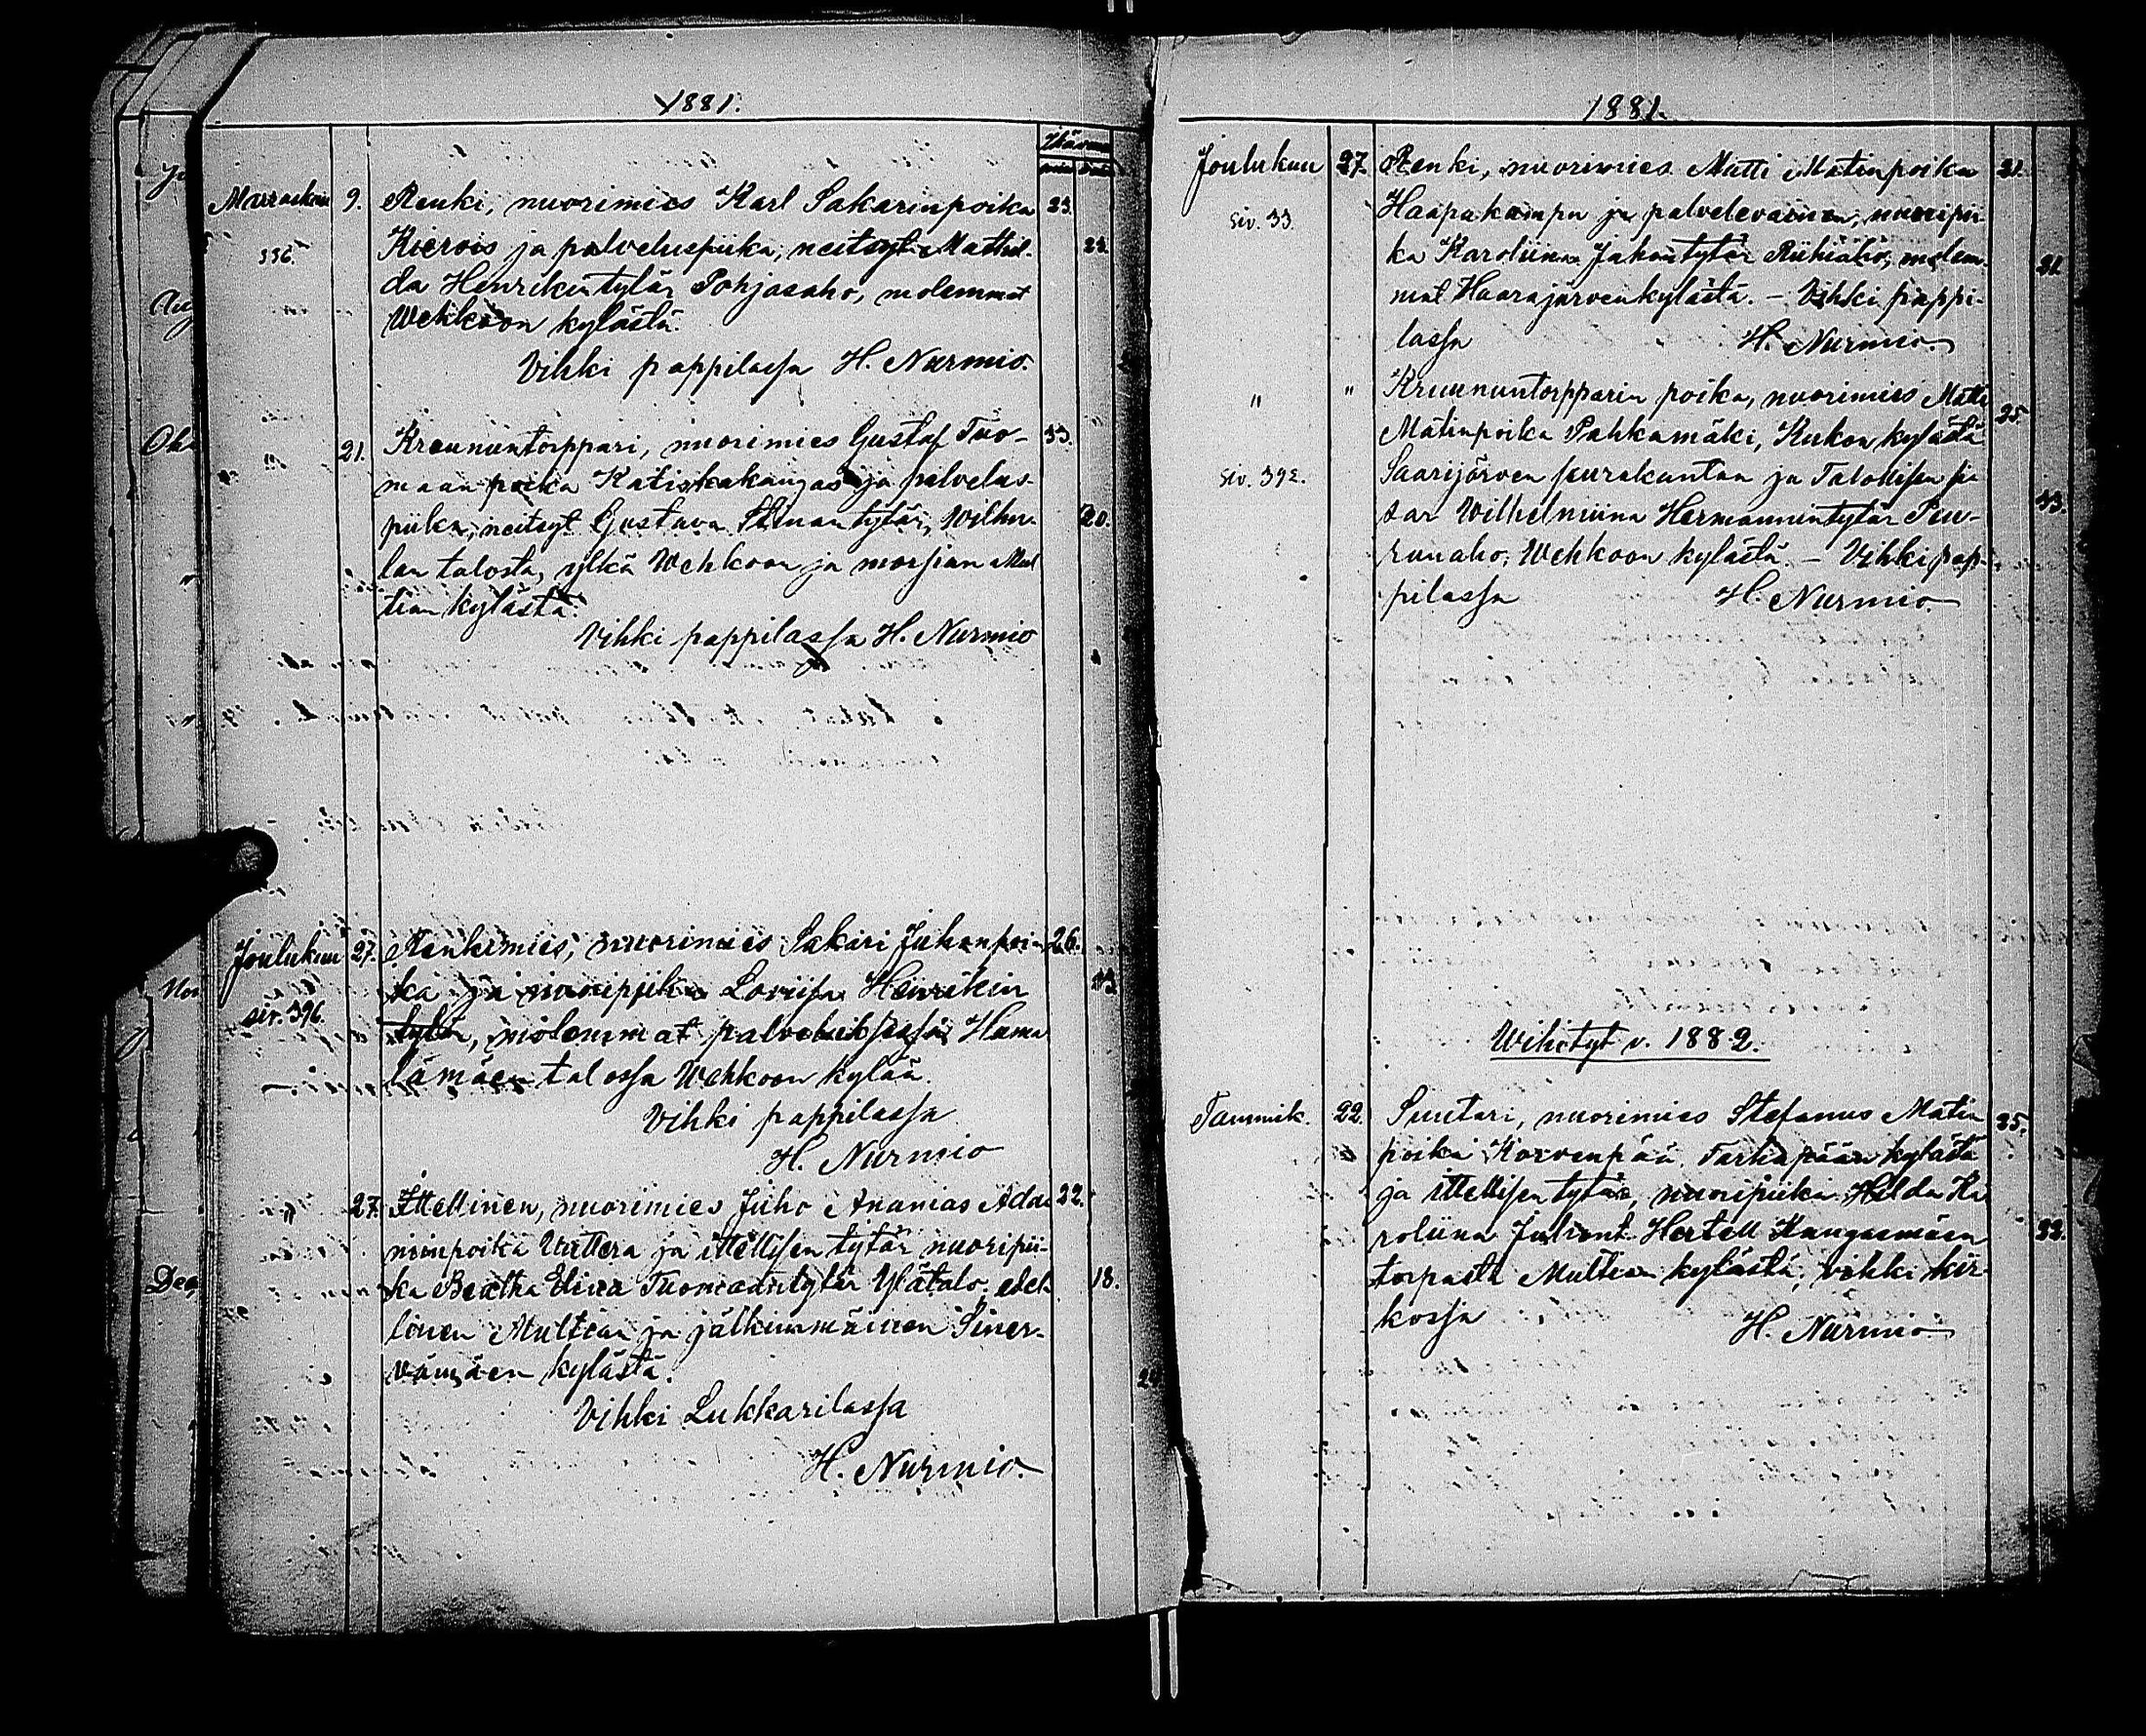 1881.
Marraskuu 9. Renki, nuorimies Karl Sakarinpoika 23.
336. Kierois ja palveluspiika, neitsyt Mathil- 22.
da Henrikintytär Pohjasaho, molemmat
Wehkoon kylästä.
Vihki pappilassa H. Nurmio.
" 21. Kruununtorppari, nuorimies Gustaf Tuo- 33.
maan poika Katiskakangas ja palvelus-
piika, neitsyt Gustava tytär, Wilhu- 20.
lan talosta, ylkä Wehkoon ja morsian Mul
tian kylästä.
Vihki pappilassa H. Nurmio
Joulukuu 27. Renkimies, nuorimies Sakari Juhanpoi- 26.
ka ja nuoripiika Loviisa Henrikin
siv. 396. tytär, molemmat palveluksessa Hama
lämäen talossa Wehkoon kylää.
Vihki pappilassa
H. Nurmio
" 27. Ittellinen, nuorimies Juho Ananias Ada 22.
minpoika Uuttera ja ittellisen tytär nuoripii-
ka Bertha Elina Tuomaantytär Ylätalo, edel 18.
linen Multian ja jälkimmäinen Siner-
vämäen kylästä.
Vihki Lukkarilassa
H. Nurmio.
1881.
Joulukuu 27. Renki, nuorimies Matti Matinpoika 21.
siv. 33. Haapakampu ja palvelevainen, nuoripii-
ka Karoliina Juhontytär Riihiaho, molem- 21.
mat Haarajärvenkylästä. - Vihki pappi-
lassa H. Nurmio.
" " Kruununtorpparin poika, nuorimies Matti 25.
Matinpoika Pahkamäki, Kukon kylästä
siv. 392. Saarijärven seurakuntaa ja Talollisen si
sar Wilhelmiina Hermannintytär Puu- 33.
runaho, Wehkoon kylästä. - Vihki pap-
pilassa H. Nurmio.
Wihityt v. 1882.
Tammik. 22. Suutari, nuorimies Stefanus Matin 25.
poika Korvenpää, Tarhapään kylästä
ja ittellisen tytär, nuoripiika Hilda Ka
roliina Juhont. Hertell Kangasmäen 22.
torpasta Multian kylästä, vihki kir-
kossa H. Nurmio